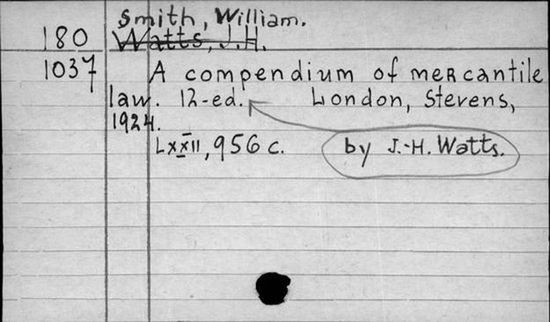 Smith, William.
180 Watts, J.H.
1037 A compendium of mercantile
law. 12-ed. London, Stevens,
1924.
LXXII, 956 c. by J.-H. Watts.